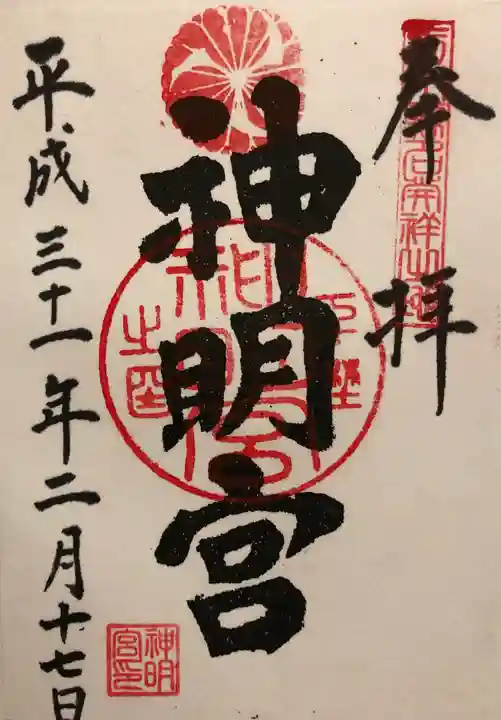 奉拝
神明宮
平成三十一年二月十七日
神明
宮印